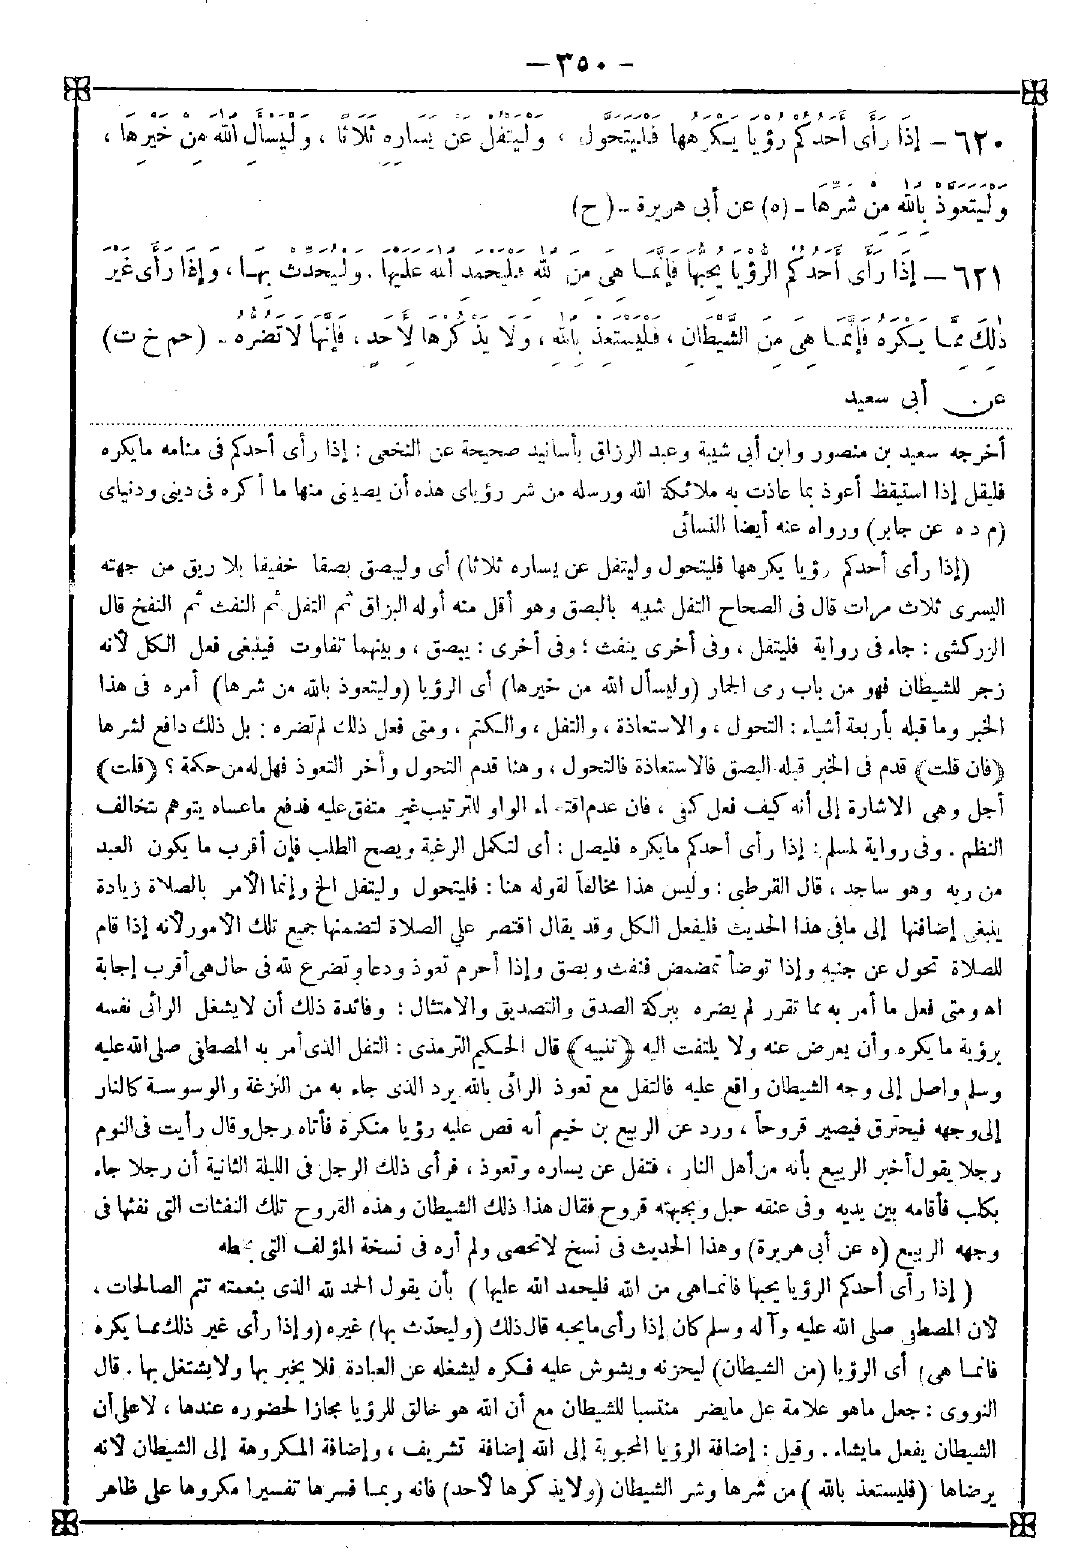 — ٣٥٠ —
٦٢٠ — إِذَا رَأَى أَحَدُكُمْ رُؤْيَا يَكْرَهُهَا فَلْيَتَحَوَّلْ ، وَلْيَتْفُلْ عَنْ يَسَارِهِ ثَلَاثًا ، وَلْيَسْأَلِ اللهَ مِنْ خَيْرِهَا ،
وَلْيَتَعَوَّذْ بِاللهِ مِنْ شَرِّهَا - (ه) عن أبى هريرة - (ح)
٦٢١ — إِذَا رَأَى أَحَدُكُمُ الرُّؤْيَا يُحِبُّهَا فَإِنَّمَا هِيَ مِنَ اللهِ فَلْيَحْمَدِ اللهَ عَلَيْهَا . وَلْيُحَدِّثْ بِهَا ، وَإِذَا رَأَى غَيْرَ
ذٰلِكَ مِمَّا يَكْرَهُ فَإِنَّمَا هِيَ مِنَ الشَّيْطَانِ ، فَلْيَسْتَعِذْ بِاللهِ ، وَلَا يَذْكُرْهَا لِأَحَدٍ ، فَإِنَّهَا لَا تَضُرُّهُ - (حم خ ت)
عن أبى سعيد
أخرجه سعيد بن منصور وابن أبى شيبة وعبد الرزاق بأسانيد صحيحة عن النخعى : إذا رأى أحدكم فى منامه مايكره
فليقل إذا استيقظ أعوذ بما عاذت به ملائكة الله ورسله من شر رؤياى هذه أن يصيبنى منها ما أكره فى دينى ودنياى
(م د ه عن جابر) ورواه عنه أيضا النسائى
(إذا رأى أحدكم رؤيا يكرهها فليتحول وليتفل عن يساره ثلاثا) أى وليبصق بصقا خفيفا بلا ريق من جهته
اليسرى ثلاث مرات قال فى الصحاح التفل شبيه بالبصق وهو أقل منه أوله البزاق ثم التفل ثم النفث ثم النفخ قال
الزركشى : جاء فى رواية فليتفل ، وفى أخرى ينفث ؛ وفى أخرى : يبصق ، وبينهما تفاوت فينبغى فعل الكل لأنه
زجر للشيطان فهو من باب رمى الجمار (وليسأل الله من خيرها) أى الرؤيا (وليتعوذ بالله من شرها) أمره فى هذا
الخبر وما قبله بأربعة أشياء : التحول ، والاستعاذة ، والتفل ، والكتم ، ومتى فعل ذلك لم تضره : بل ذلك دافع لشرها
(فان قلت) قدم فى الخبر قبله البصق فالاستعاذة فالتحول ، وهنا قدم التحول وأخر التعوذ فهل له من حكمة ؟ (قلت)
أجل وهى الاشارة إلى أنه كيف فعل كفى ، فان عدم اقتضاء الواو للترتيب غير متفق عليه فدفع ماعساه يتوهم بتخالف
النظم . وفى رواية لمسلم : إذا رأى أحدكم مايكره فليصل : أى لتكمل الرغبة ويصح الطلب فإن أقرب ما يكون العبد
من ربه وهو ساجد ، قال القرطبى : وليس هذا مخالفاً لقوله هنا : فليتحول وليتفل الخ وإنما الأمر بالصلاة زيادة
ينبغى إضافتها إلى مافى هذا الحديث فليفعل الكل وقد يقال اقتصر على الصلاة لتضمنها جميع تلك الأمور لأنه إذا قام
للصلاة تحول عن جنبه وإذا توضأ تمضمض فنفث وبصق وإذا أحرم تعوذ ودعا وتضرع لله فى حال هى أقرب إجابة
اه ومتى فعل ما أمر به مما تقرر لم يضره ببركة الصدق والتصديق والامتثال : وفائدة ذلك أن لايشغل الرائى نفسه
برؤية مايكره وأن يعرض عنه ولا يلتفت اليه (تنبيه) قال الحكيم الترمذى : التفل الذى أمر به المصطفى صلى الله عليه
وسلم واصل إلى وجه الشيطان واقع عليه فالتفل مع تعوذ الرائى بالله يرد الذى جاء به من النزغة والوسوسة كالنار
إلى وجهه فيحترق فيصير قروحاً ، ورد عن الربيع بن خيم أنه قص عليه رؤيا منكرة فأتاه رجل وقال رأيت فى النوم
رجلا يقول أخبر الربيع بأنه من أهل النار ، فتفل عن يساره وتعوذ ، فرأى ذلك الرجل فى الليلة الثانية أن رجلا جاء
بكلب فأقامه بين يديه وفى عنقه حبل وبجبهته قروح فقال هذا ذلك الشيطان وهذه القروح تلك النفثات التى نفثها فى
وجهه الربيع (ه عن أبى هريرة) وهذا الحديث فى نسخ لاتحصى ولم أره فى نسخة المؤلف التى بخطه
( إذا رأى أحدكم الرؤيا يحبها فانما هى من الله فليحمد الله عليها ) بأن يقول الحمد لله الذى بنعمته تتم الصالحات ،
لأن المصطفى صلى الله عليه وآله وسلم كان إذا رأى مايحبه قال ذلك (وليحدّث بها) غيره (وإذا رأى غير ذلك مما يكره
فانما هى) أى الرؤيا (من الشيطان) ليحزنه ويشوش عليه فكره ليشغله عن العبادة فلا يخبر بها ولايشتغل بها . قال
النووى : جعل ماهو علامة على مايضر منتسبا للشيطان مع أن الله هو خالق للرؤيا مجازا لحضوره عندها ، لا على أن
الشيطان يفعل مايشاء . وقيل : إضافة الرؤيا المحبوبة إلى الله إضافة تشريف ، وإضافة المكروهة إلى الشيطان لأنه
يرضاها (فليستعذ بالله ) من شرها وشر الشيطان (ولايذكرها لأحد) فانه ربما فسرها تفسيرا مكروها على ظاهر